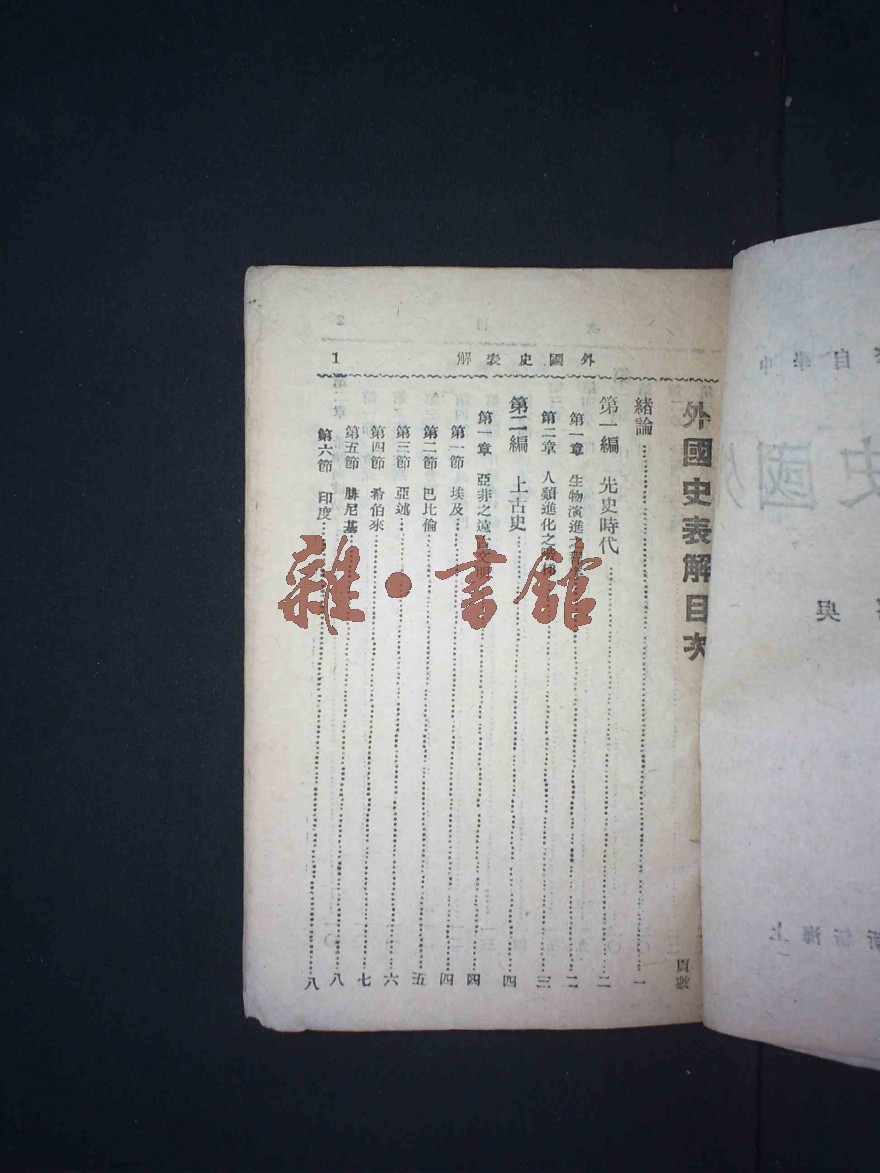 外國史表解 1
外國史表解目次
頁數
緒論……一
第一編 先史時代……二
第一章 生物演進之……二
第二章 人類進化之階梯……三
第二編 上古史……四
第一章 亞非之遠古文明……四
第一節 埃及……四
第二節 巴比倫……五
第三節 亞述……六
第四節 希伯來……七
第五節 腓尼基……八
第六節 印度……八
雜·書館